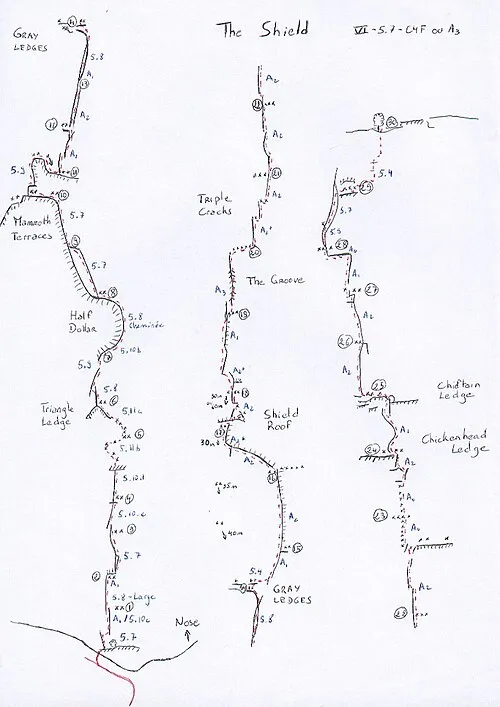 The Shield
VI - 5.7 - C4F ou A3
GRAY
LEDGES
14
5.8
A1
13
A2
12
A1
11
5.9
10
5.7
Mammoth
Terraces
9
5.7
8
Half
Dollar
5.8
Cheminée
5.10b
7
5.9
5.8
6
Triangle
Ledge
5.11c
5
5.11b
5.10d
4
5.10c
3
5.7
2
A1
5.8 - Large
1
A1/5.10c
5.7
Nose
A2
A2
21
A2
Triple
Cracks
A2+
20
The Groove
A3
19
A1
A2+
18
30m
40m
A2
Shield
Roof
17
30m
A2+
A2
16
55m
A2
40m
15
A1
5.4
GRAY
LEDGES
5.8
30
5.4
29
5.7
5.9
28
A1
27
A2
26
A2
25
Chieftain
Ledge
A1
Chickenhead
Ledge
24
A2
23
A2
22